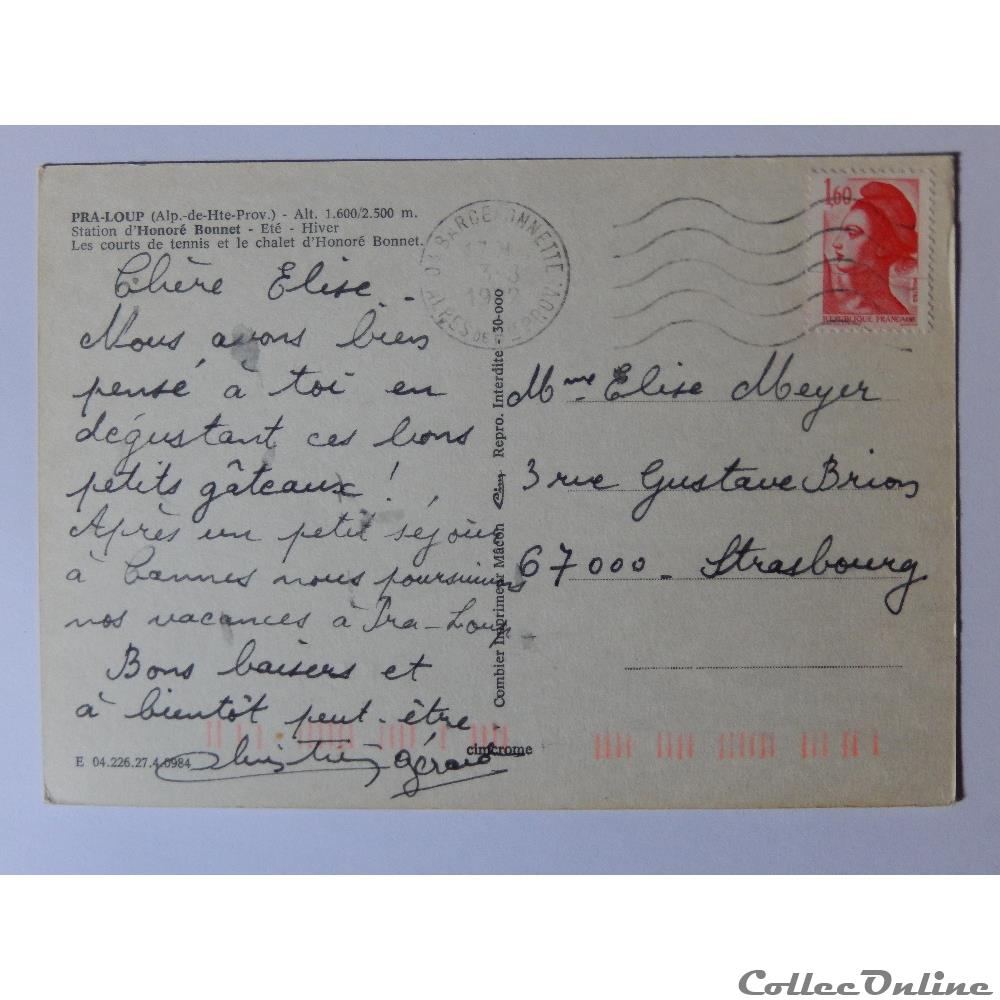 PRA-LOUP (Alp.-de-Hte-Prov.) - Alt. 1.600/2.500 m.
Station d'Honoré Bonnet - Eté - Hiver
Les courts de tennis et le chalet d'Honoré Bonnet.
Chère Elise.
Nous avons bien
pensé à toi en
dégustant ces bons
petits gâteaux !
Après un petit séjour
à Cannes nous poursuivons
nos vacances à Pra-Loup
Bons baisers et
à bientôt peut-être
Gérard
E 04.226.27.4.0984
cimcrome
Combier Imprimeur Mâcon Cim Repro. Interdite - 30-000
04 BARCELONNETTE
ALPES DE HTE PROV.
3-8
1982
1,60
REPUBLIQUE FRANCAISE
Mme Elise Meyer
3 rue Gustave Brion
67000 - Strasbourg
CollecOnline